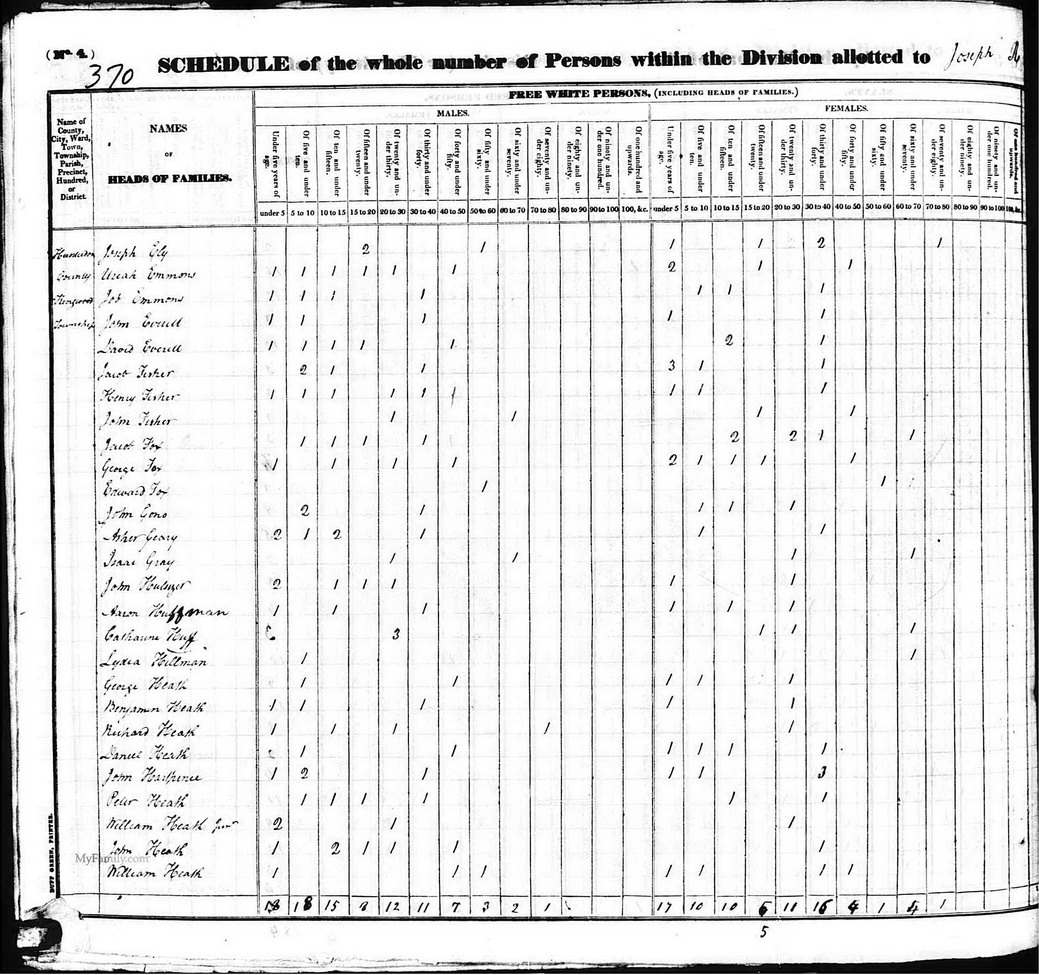 (No. 4.)
370
SCHEDULE of the whole number of Persons within the Division allotted to Joseph
FREE WHITE PERSONS, (INCLUDING HEADS OF FAMILIES.)
MALES. FEMALES.
Name of County, City, Ward, Town, Township, Parish, Precinct, Hundred, or District.
NAMES
OR
HEADS OF FAMILIES.
Under five years of age. Of five and under ten. Of ten and under fifteen. Of fifteen and under twenty. Of twenty and under thirty. Of thirty and under forty. Of forty and under fifty. Of fifty and under sixty. Of sixty and under seventy. Of seventy and under eighty. Of eighty and under ninety. Of ninety and under one hundred. Of one hundred and upwards. Under five years of age. Of five and under ten. Of ten and under fifteen. Of fifteen and under twenty. Of twenty and under thirty. Of thirty and under forty. Of forty and under fifty. Of fifty and under sixty. Of sixty and under seventy. Of seventy and under eighty. Of eighty and under ninety. Of ninety and under one hundred. Of one hundred and upwards.
under 5 5 to 10 10 to 15 15 to 20 20 to 30 30 to 40 40 to 50 50 to 60 60 to 70 70 to 80 80 to 90 90 to 100 100, &c. under 5 5 to 10 10 to 15 15 to 20 20 to 30 30 to 40 40 to 50 50 to 60 60 to 70 70 to 80 80 to 90 90 to 100 100, &c.
Hunterdon Joseph Ely 2 1 1 1 2 1
County Uriah Emmons 1 1 1 1 1 1 2 1 1
Kingwood Job Emmons 1 1 1 1 1 1 1
Township John Everitt 1 1 1 1 1
David Everitt 1 1 1 1 1 2 1
Jacob Fisher 2 1 1 3 1 1
Henry Fisher 1 1 1 1 1 1 1 1 1
John Fisher 1 1 1 1
Jacob Fox 1 1 1 1 2 2 1 1
George Fox 1 1 1 1 2 1 1 1 1
Edward Fox 1 1
John Gono 2 1 1 1 1
Asher Geary 2 1 2 1 1 1
Isaac Gray 1 1 1 1
John 2 1 1 1 1 1
Aaron Huffman 1 1 1 1 1 1
Catharine Huff 3 1 1 1
Lydia Hillman 1 1
George Heath 1 1 1 1 1
Benjamin Heath 1 1 1 1 1
Richard Heath 1 1 1 1 1
Daniel Heath 1 1 1 1 1 1
John 1 2 1 1 1 3
Peter Heath 1 1 1 1 1 1
William Heath Junr 2 1 1
John Heath 1 2 1 1 1 1
William Heath 1 1 1 1 1 1 1
18 18 15 8 12 11 7 3 2 1 17 10 10 6 11 16 4 1 4 1
5
DUFF GREEN, PRINTER.
MyFamily.com